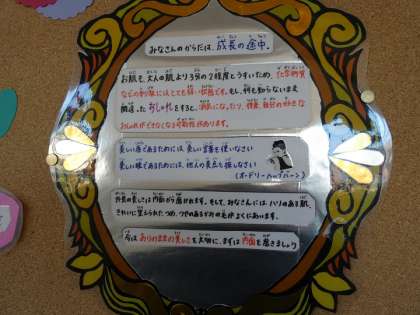 みなさんのからだは、成長の途中。
お肌も、大人の肌より3分の2程度とうすいため、化学物質
などの刺激にはとても弱い状態です。もし、何も知らないまま
間違ったおしゃれをすると、
おしゃれができなくなる可能性があります。
美しい唇であるためには 美しい言葉を使いなさい
美しい瞳であるためには、他人の美点を探しなさい
(オードリーヘップバーン)
外見の美しさは内面から溢れます。そして、みなさんには、ハリのある肌、
きれいに整えられたつめ、つやのあるかみの毛がよくにあいます。
今はありのままの美しさを大切に、まずは内面を磨きましょう